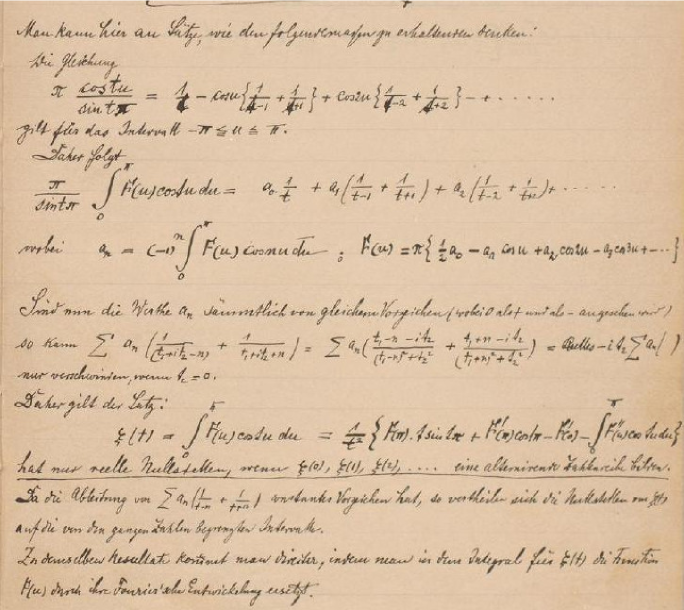 Man kann hier an Sätze, wie den folgendermaßen zu erhaltenden denken:
Die Gleichung
π cos tu / sin tπ = 1/t − cos u {1/(t−1) + 1/(t+1)} + cos 2u {1/(t−2) + 1/(t+2)} − + ......
gilt für das Intervall −π ≦ u ≦ π.
Daher folgt
π / sin tπ ∫₀^π F(u) cos tu du = a₀ 1/t + a₁ (1/(t−1) + 1/(t+1)) + a₂ (1/(t−2) + 1/(t+2)) + ......
wobei aₙ = (−1)ⁿ ∫₀^π F(u) cos nu du ; F(u) = π {½ a₀ − a₁ cos u + a₂ cos 2u − a₃ cos 3u + ...}
Sind nun die Werthe aₙ sämmtlich von gleichem Vorzeichen (wobei 0 als + und als − angesehen wird)
so kann ∑ aₙ (1/(t₁+it₂−n) + 1/(t₁+it₂+n)) = ∑ aₙ ((t₁−n−it₂)/((t₁−n)²+t₂²) + (t₁+n−it₂)/((t₁+n)²+t₂²)) = Reelles − i t₂ ∑ aₙ ( )
nur verschwinden, wenn t₂ = 0.
Daher gilt der Satz:
ξ(t) = ∫₀^π F(u) cos tu du = 1/t² {F(π) . t sin tπ + F'(π) cos tπ − F'(0) − ∫₀^π F''(u) cos tu du}
hat nur reelle Nullstellen, wenn ξ(0), ξ(1), ξ(2), .... eine alternirende Zahlenreihe bilden.
Da die Ableitung von ∑ aₙ (1/(t−n) + 1/(t+n)) constantes Vorzeichen hat, so vertheilen sich die Nullstellen von ξ(t)
auf die von den ganzen Zahlen begrenzten Intervalle.
Zu demselben Resultate kommt man direkter, indem man in dem Integral für ξ(t) die Function
F(u) durch ihre Fourier'sche Entwickelung ersetzt.